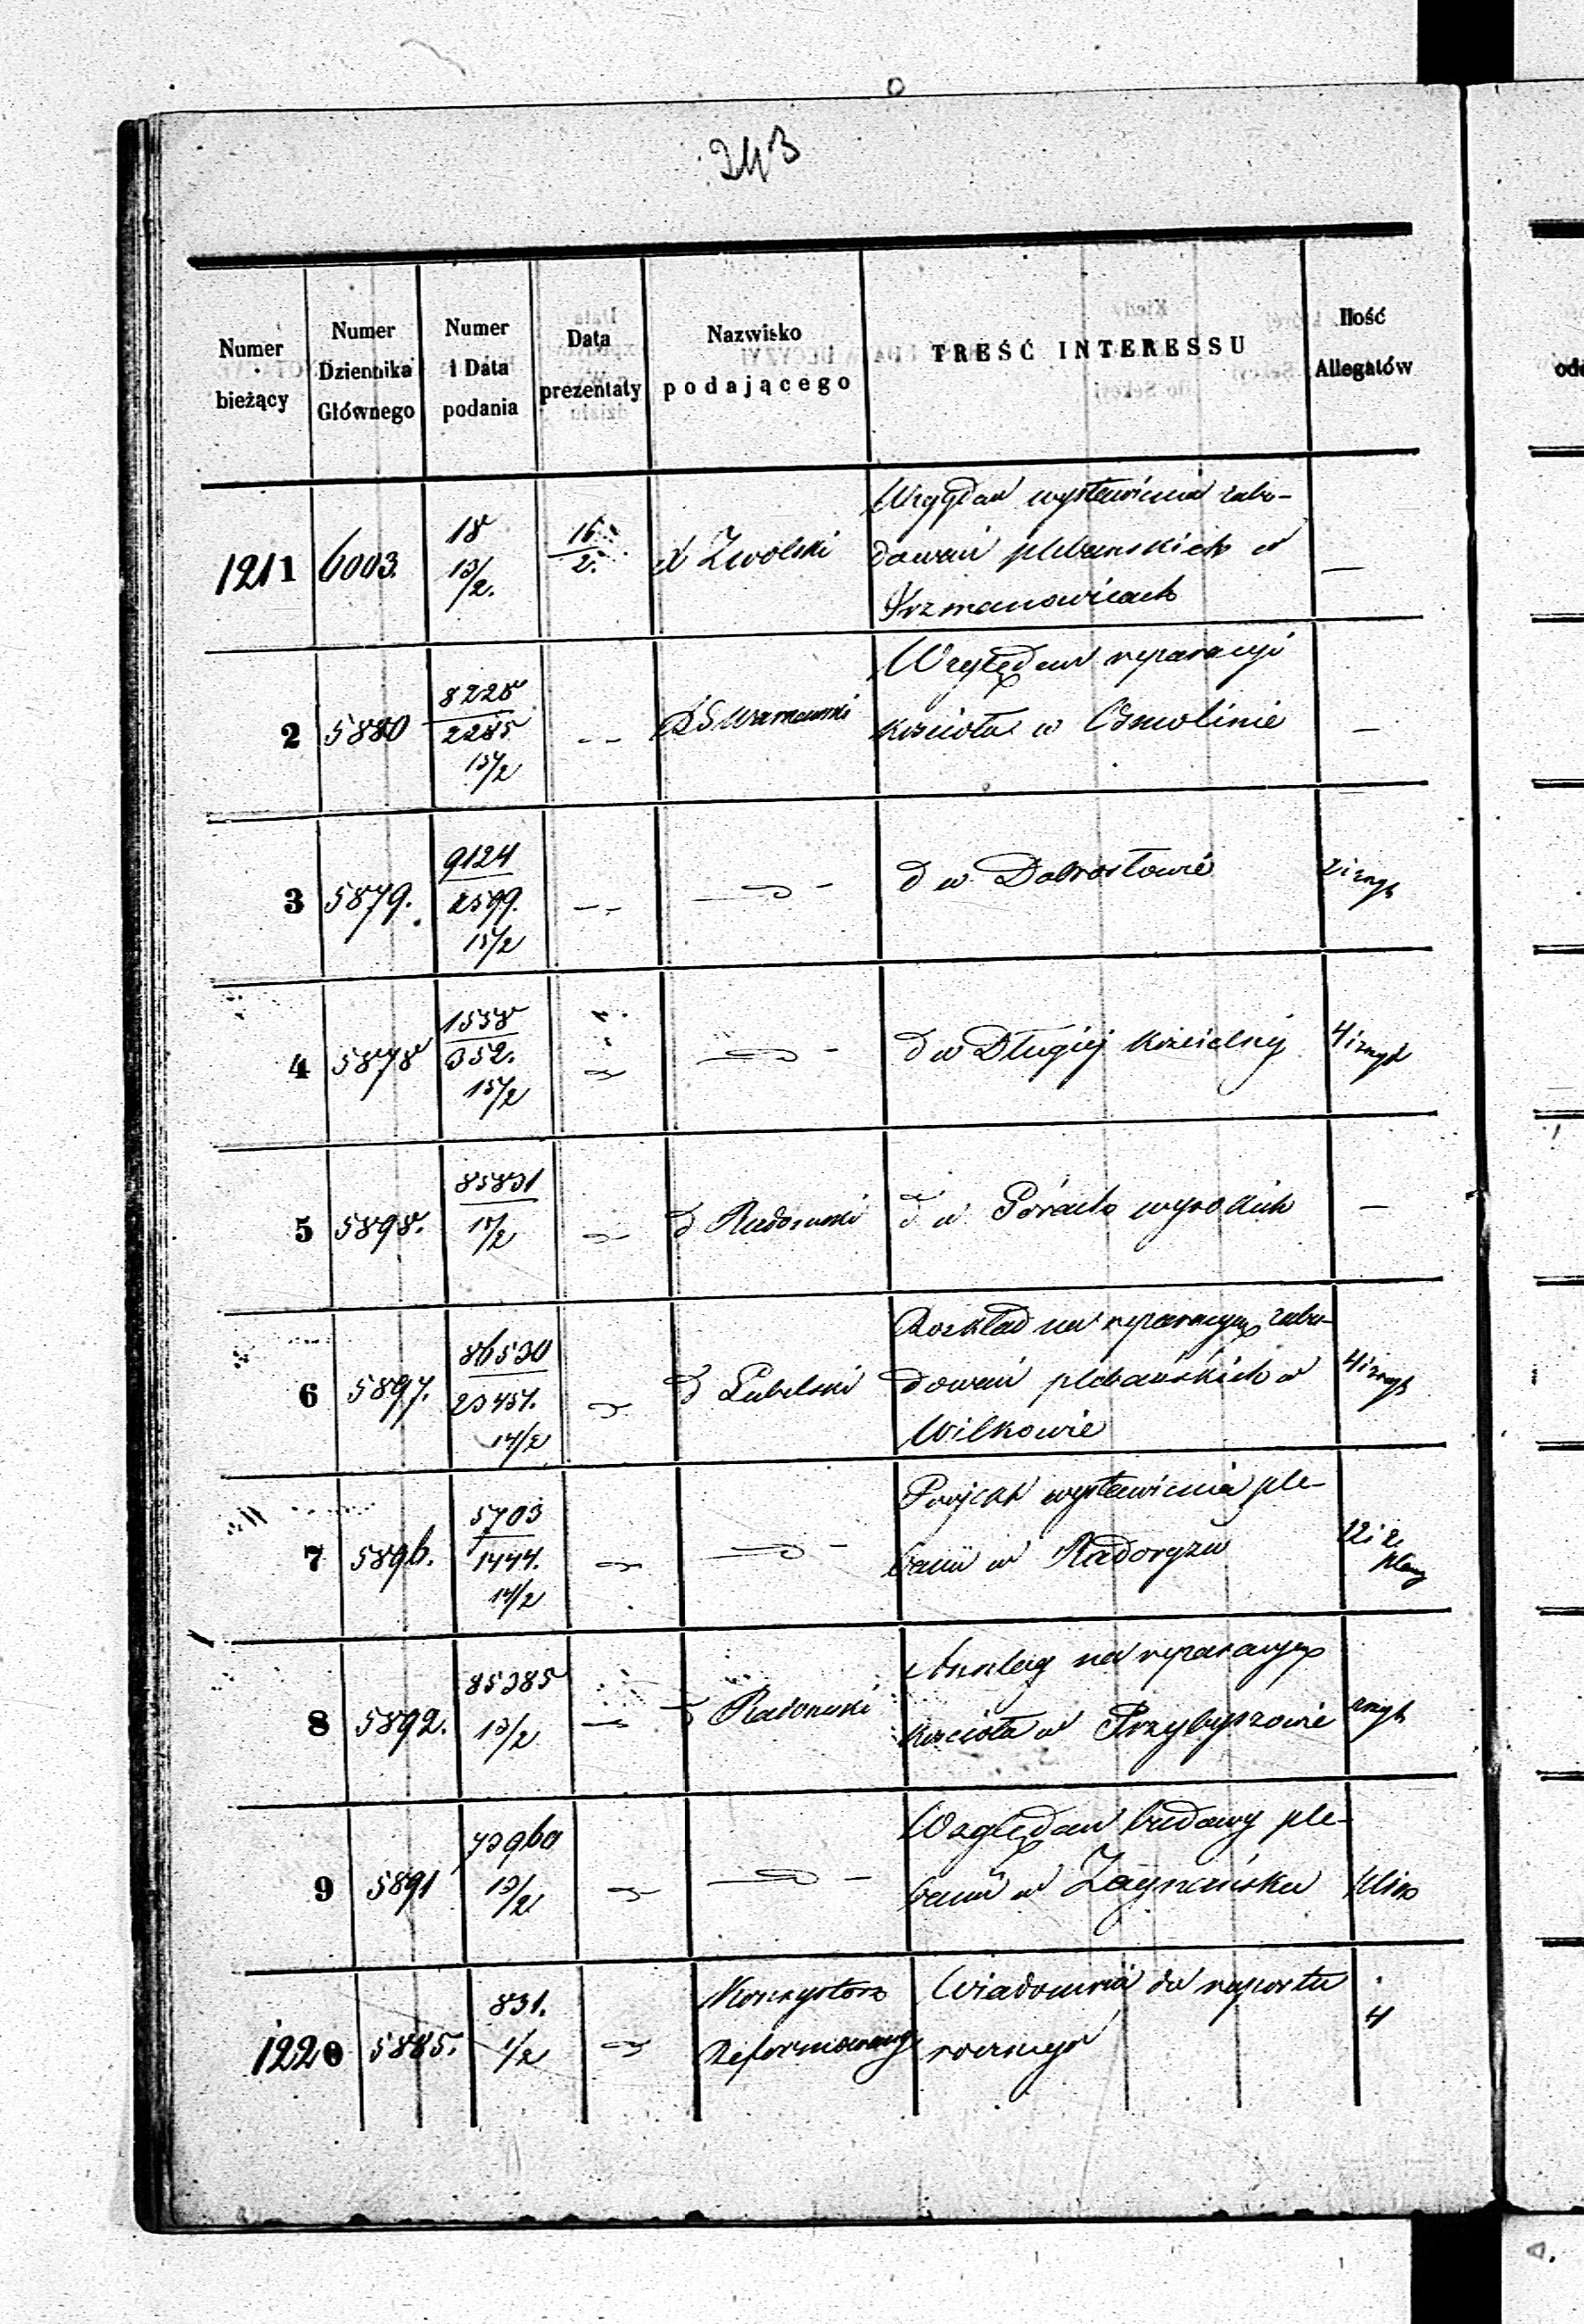 243
Numer bieżący | Numer Dziennika Głównego | Numer i Data podania | Data prezentaty | Nazwisko podającego | TREŚĆ INTERESSU | Ilość Allegatów
1211 | 6003. | 18 13/2. | 16/2. | X Zwolski | Względem wystawienia zabu-
dowań plebanskich w
—
2 | 5880 | 8228 2285 15/2 | - - | Względem reparacyi
kościoła w Osmolinie | —
3 | 5879. | 9124 2599. 15/2 | - - | —d— | d w Dobrosłowie
4 | 5878 | 1538 352. 15/2 | —d— | d w Długiéj kościelnéj
5 | 5898. | 85831 15/2 | d Radomski | d w Górach wysokich | —
6 | 5897. | 86530 23457. 14/2 | d Lubelski | Rozkład na reparacyę zabu-
dowań plebańskich w
Wilkowie
7 | 5896. | 5703 1444. 14/2 | —d— | Projekt wystawienia ple-
banii w Radoryżu | 22 i 2 plany
8 | 5892. | 85385 13/2 | d Radomski | Anszlag na reparacyę
kościoła w Przybyszowie
9 | 5891 | 73960 13/2 | —d— | Względem budowy ple-
banii w Zagnańsku
1220 | 5885. | 831. 1/2 | Konsystorz Reformowany | Wiadomość do raportu
rocznego | 4